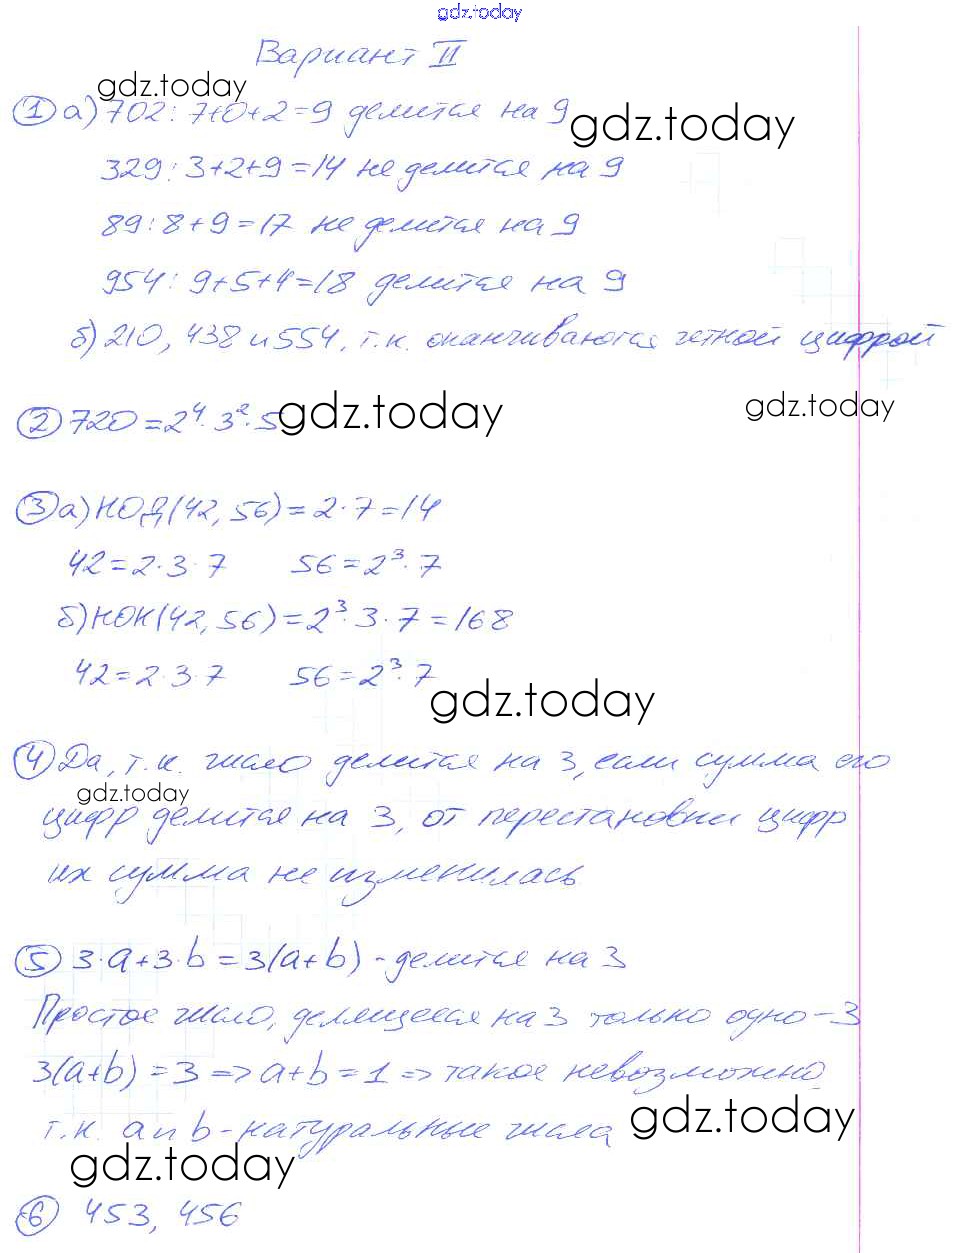 gdz.today
Вариант II
gdz.today
① а) 702: 7+0+2=9 делится на 9
gdz.today
329: 3+2+9=14 не делится на 9
89: 8+9=17 не делится на 9
954: 9+5+4=18 делится на 9
б) 210, 438 и 554, т.к. оканчиваются четной цифрой
gdz.today gdz.today
② 720=2⁴·3²·5
③ а) НОД(42, 56)=2·7=14
42=2·3·7 56=2³·7
б) НОК(42, 56)=2³·3·7=168
42=2·3·7 56=2³·7
gdz.today
④ Да, т.к. число делится на 3, если сумма его
gdz.today
цифр делится на 3, от перестановки цифр
их сумма не изменилась
⑤ 3·a+3·b=3(a+b) - делится на 3
Простое число, делящееся на 3 только одно – 3
3(a+b)=3 => a+b=1 => такое невозможно,
gdz.today
т.к. a и b - натуральные числа
gdz.today
⑥ 453, 456